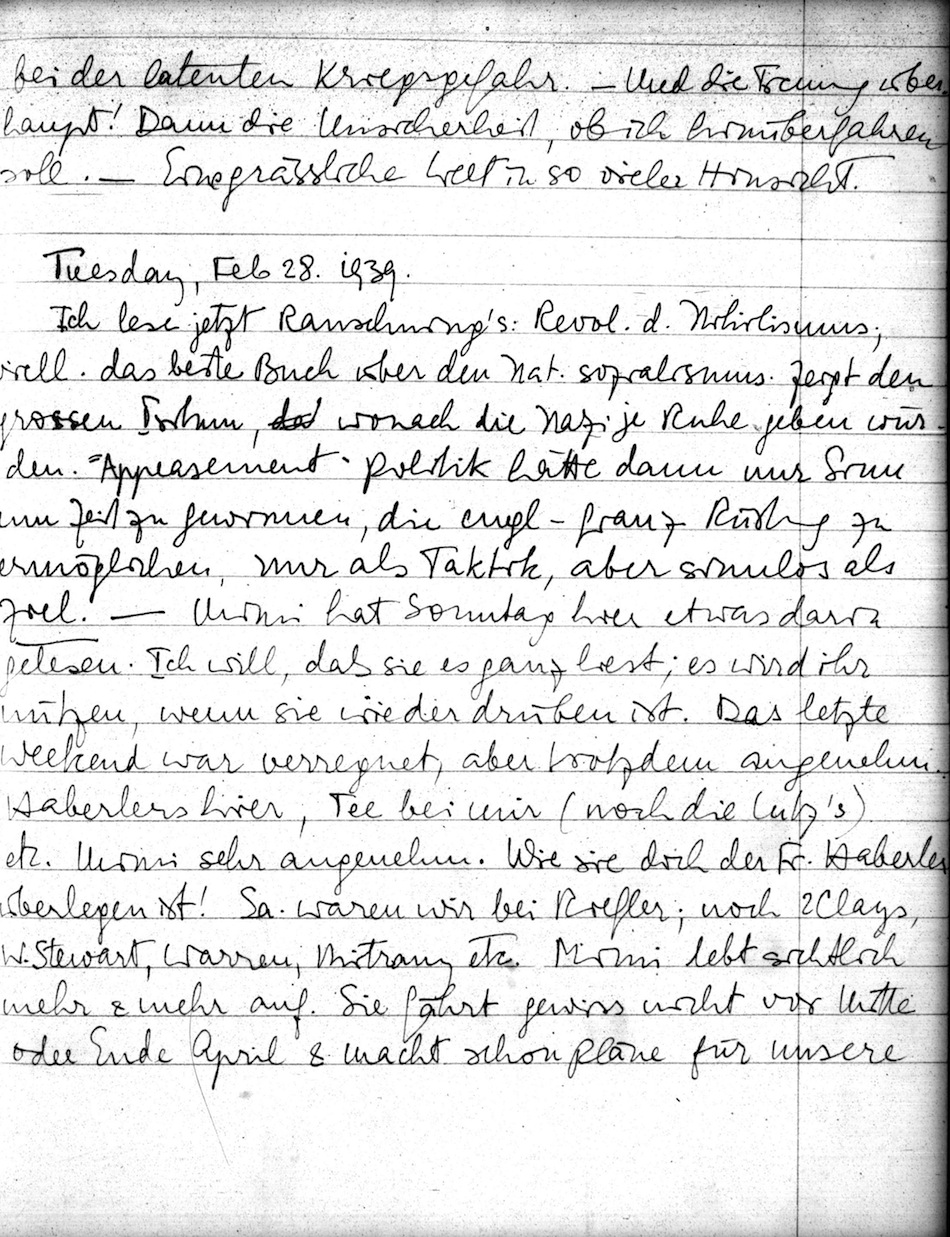 bei der latenten Kriegsgefahr. – Und die Trennung über-
haupt! Dann die Unsicherheit, ob ich hinüberfahren
soll. — Eine grässliche Welt in so vieler Hinsicht.
Tuesday, Feb 28. 1939.
Ich lese jetzt Rauschning's: Revol. d. Nihilismus;
viell. das beste Buch über den Nat. sozialismus. Zeigt den
grossen Irrtum, das wonach die Nazi je Ruhe geben wür-
den. "Appeasement" politik hätte dann nur Sinn
um Zeit zu gewinnen, die engl-franz Rüstung zu
ermöglichen, nur als Taktik, aber sinnlos als
Ziel. — Mimi hat Sonntag hier etwas darin
gelesen. Ich will, dass sie es ganz liest; es wird ihr
nützen, wenn sie wieder drüben ist. Das letzte
Weekend war verregnet, aber trotzdem angenehm.
Haberlers hier, Tee bei mir (noch die Lutz's)
etc. Mimi sehr angenehm. Wie sie doch der Fr. Haberler
überlegen ist! Sa. waren wir bei Riefler; noch 2 Clays,
W. Stewart, Warren, Mitrany etc. Mimi lebt sichtlich
mehr & mehr auf. Sie fährt gewiss nicht vor Mitte
oder Ende April & macht schon Pläne für unsere